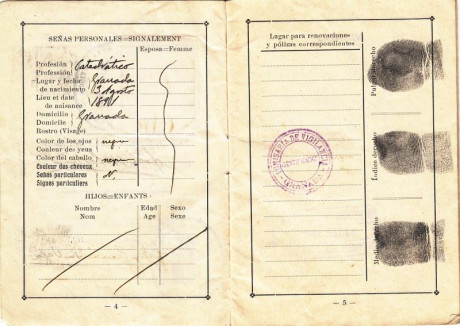 SEÑAS PERSONALES=SIGNALEMENT
Esposa=Femme
Profesión Catedrático
Profession
Lugar y fecha Granada
de nacimiento 13 Agosto
Lieu et date
de naisance
Domicilio Granada
Domicile
Rostro (Visage)
Color de los ojos negro
Couleur des yeux
Color del cabello negro
Couleur des cheveux
Señas particulares N.
Signes particuliers
HIJOS=ENFANTS
Nombre Edad Sexo
Nom Age Sexe
- 4 -
Lugar para renovaciones
y pólizas correspondientes
COMISARIA DE VIGILANCIA
GRANADA
Pulgar derecho
Índice derecho
Medio derecho
- 5 -